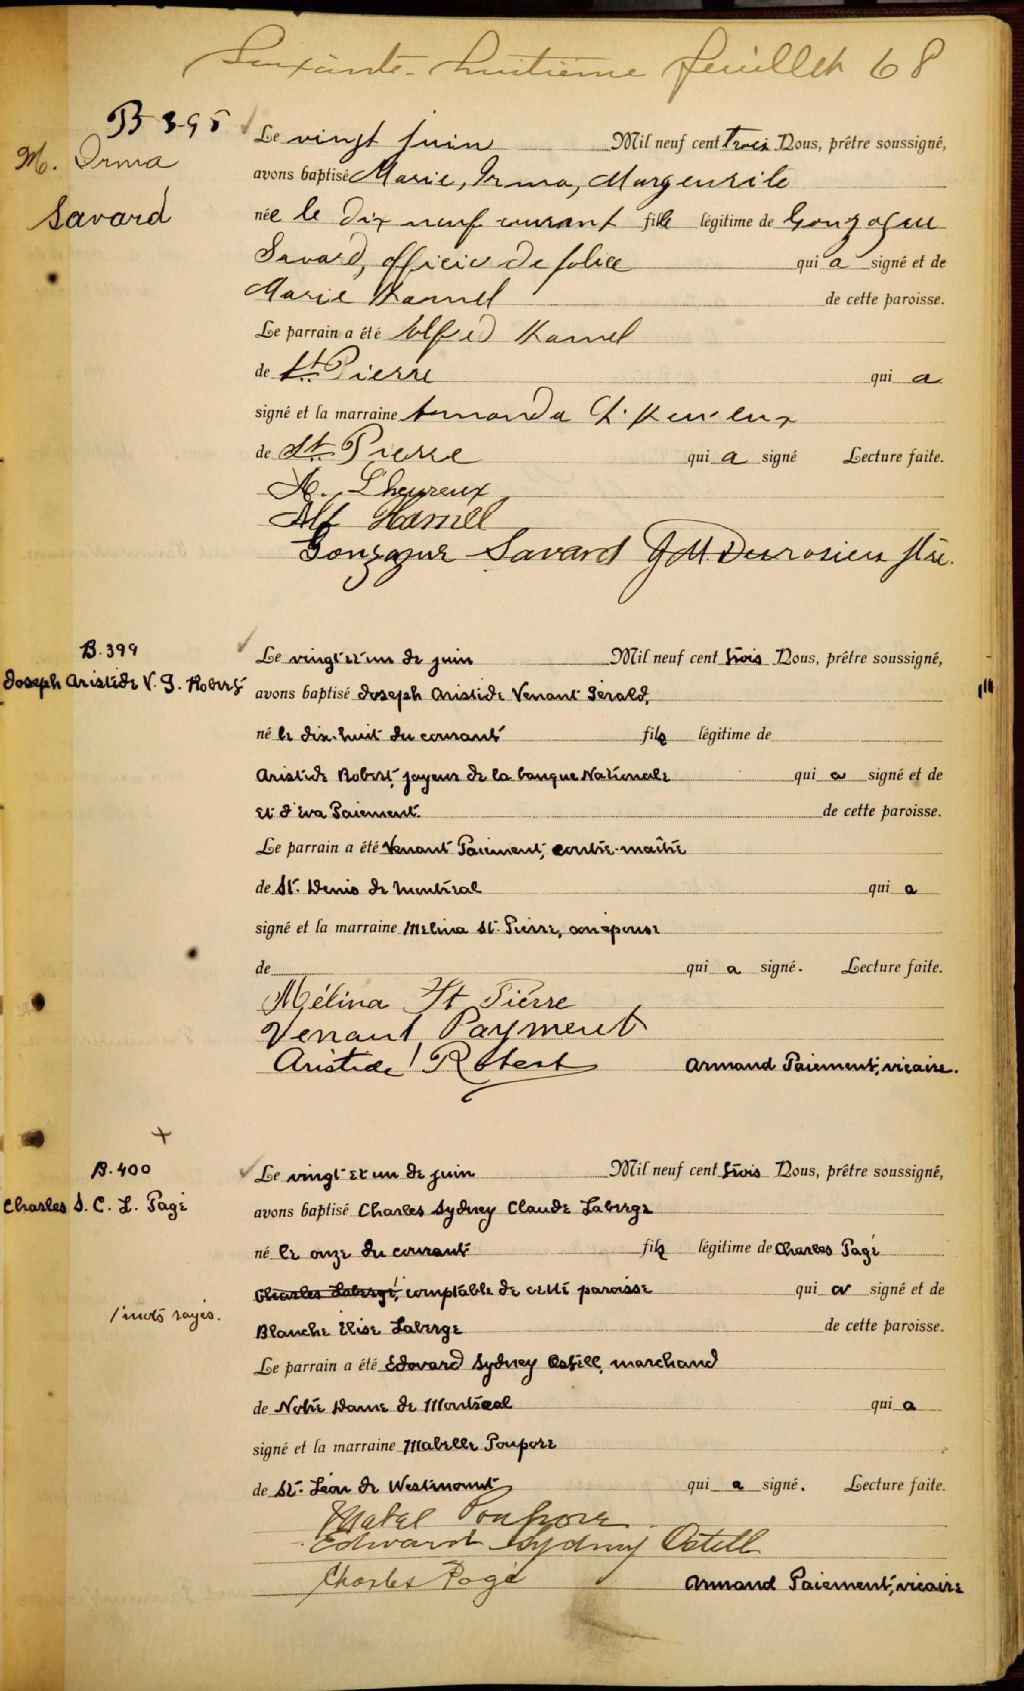 Soixante-huitième feuillet 68
B 398
M. Irma
Savard
Le vingt juin Mil neuf cent trois Nous, prêtre soussigné,
avons baptisé Marie, Irma, Marguerite
née le dix neuf courant fille légitime de Gonzague
Savard, officier de police qui a signé et de
Marie Hamel de cette paroisse.
Le parrain a été Alfred Hamel
de St Pierre qui a
signé et la marraine Amanda L'Heureux
de St. Pierre qui a signé Lecture faite.
A. L'heureux
Alf Hamel
Gonzague Savard J M Desrosiers ptre.
B. 399
Joseph Aristide V. G. Robert
Le vingt et un de juin Mil neuf cent trois Nous, prêtre soussigné,
avons baptisé Joseph Aristide Venant Gérald,
né le dix-huit du courant fils légitime de
Aristide Robert, payeur de la banque Nationale qui a signé et de
et d'Eva Paiement. de cette paroisse.
Le parrain a été Venant Paiement, contre-maître
de St. Denis de Montréal qui a
signé et la marraine Melina St-Pierre, son épouse
de qui a signé. Lecture faite.
Mélina St Pierre
Venant Payment
Aristide Robert Armand Paiement, vicaire.
B. 400
Charles S. C. L. Pagé
Le vingt et un de juin Mil neuf cent trois Nous, prêtre soussigné,
avons baptisé Charles Sydney Claude Laberge
né le onze du courant fils légitime de Charles Pagé
Charles Laberge, comptable de cette paroisse qui a signé et de
mots rayés.
Blanche Elise Laberge de cette paroisse.
Le parrain a été Edouard Sydney Ostell, marchand
de Notre Dame de Montréal qui a
signé et la marraine Mabelle Poupore
de St. Léon de Westmount qui a signé. Lecture faite.
Mabel Poupore
Edward Sydney Ostell
Charles Pagé Armand Paiement, vicaire